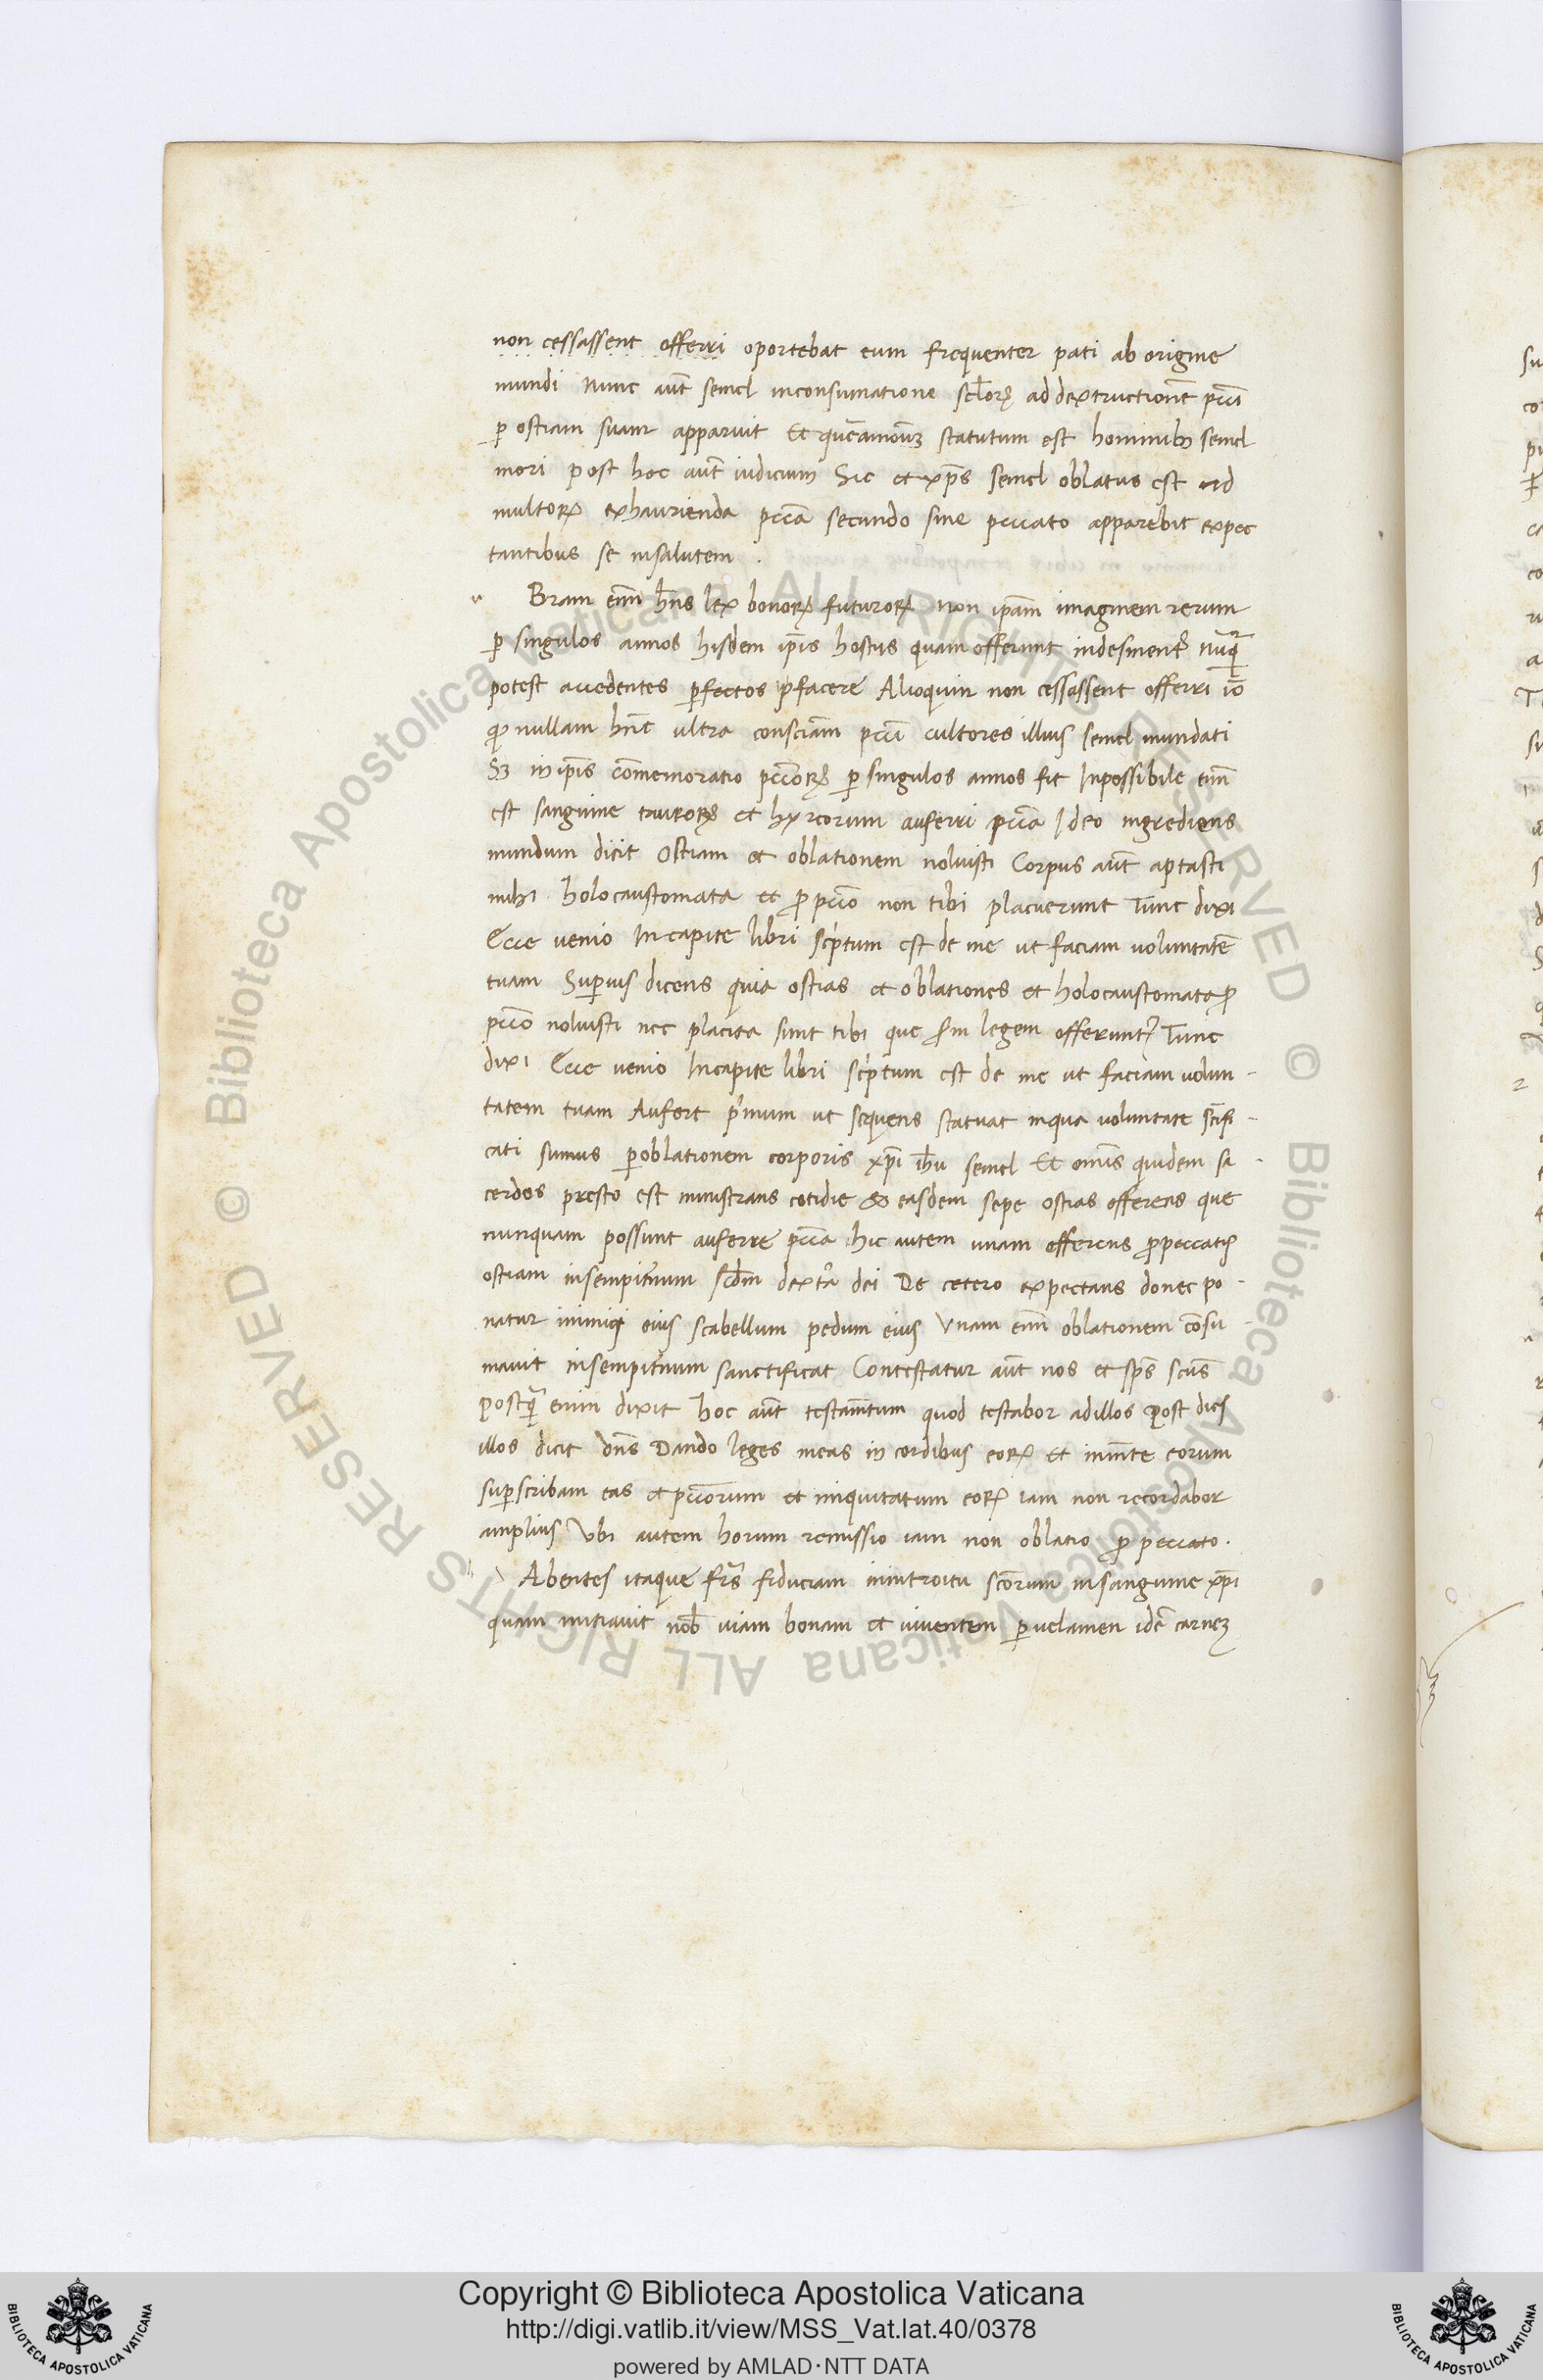 non cessassent offerri oportebat eum frequenter pati ab origine
mundi Nunc aūt semel inconsumatione scl̄oꝝ ad dextructionē pcc̄i
ꝑ ostiam suam apparuit Et quēamodū statutum est hominibꝫ semel
mori post hoc aūt iudicium Sic et xp̄s semel oblatus est ad
multoꝝ exhaurienda pcc̄a secundo sine peccato apparebit expec
tantibus se insalutem .
Bram enī hn̄s lex bonoꝝ futuroꝝ non ip̄am imaginem rerum
ꝑ singulos annos hisdem ip̄is hostiis quam offerunt indesinent̉ nūqᷓ
potest accedentes ꝑfectos ꝑfacere Alioquin non cessassent offerri iō
ꝙ nullam hn̄t ultra consciām pcc̄i cultores illius semel mundati
Sꝫ in ip̄is cōmemoratio pcc̄oꝝ ꝑ singulos annos fit Inpossibile enī
est sanguine tauroꝝ et hyrcorum auferri pcc̄a Ideo ingrediens
mundum dicit Ostiam et oblationem noluisti Corpus aūt aptasti
mihi holocaustomata et ꝓ pcc̄o non tibi placuerunt Tunc dixi
Ecce uenio In capite libri sc̍ptum est de me ut faciam uoluntatē
tuam Suꝑius dicens quia ostias et oblationes et holocaustomata ꝓ
pcc̄o noluisti nec placita sunt tibi que ẜm legem offerunt̉ Tunc
dixi Ecce uenio Incapite libri sc̍ptum est de me ut faciam uolun-
tatem tuam Aufert p̍mum ut sequens statuat inqua uoluntate sc̄ifi-
cati sumus ꝑoblationem corporis xp̄i ih̄u semel Et om̄is quidem sa-
cerdos presto est ministrans cotidie & easdem sepe ostias offerens que
nunquam possunt auferre pcc̄a hic autem unam offerens ꝓpeccatis
ostiam insempit̉num sed̄ in dextᷓa dei De cetero expectans donec po-
natur inimici eius scabellum pedum eius Vnam enī oblationem cōsu-
mauit insempit̉num sanctificat Contestatur aūt nos et sp̄s sc̄us
postqᷓ enim dixit hoc aūt testam̄tum quod testabor adillos post dies
illos dicit dn̄s Dando leges meas in cordibus eoꝝ et inm̄te eorum
suꝑscribam eas et pcc̄orum et iniquitatum eoꝝ iam non recordabor
amplius Vbi autem horum remissio iam non oblatio ꝓ peccato .
Abentes itaque fr̄s fiduciam inintroitu sc̄orum insanguine xp̄i
quam initiauit nob̄ uiam bonam et uiuentem ꝑ uelamen idē carneꝫ
Copyright © Biblioteca Apostolica Vaticana
http://digi.vatlib.it/view/MSS_Vat.lat.40/0378
powered by AMLAD·NTT DATA